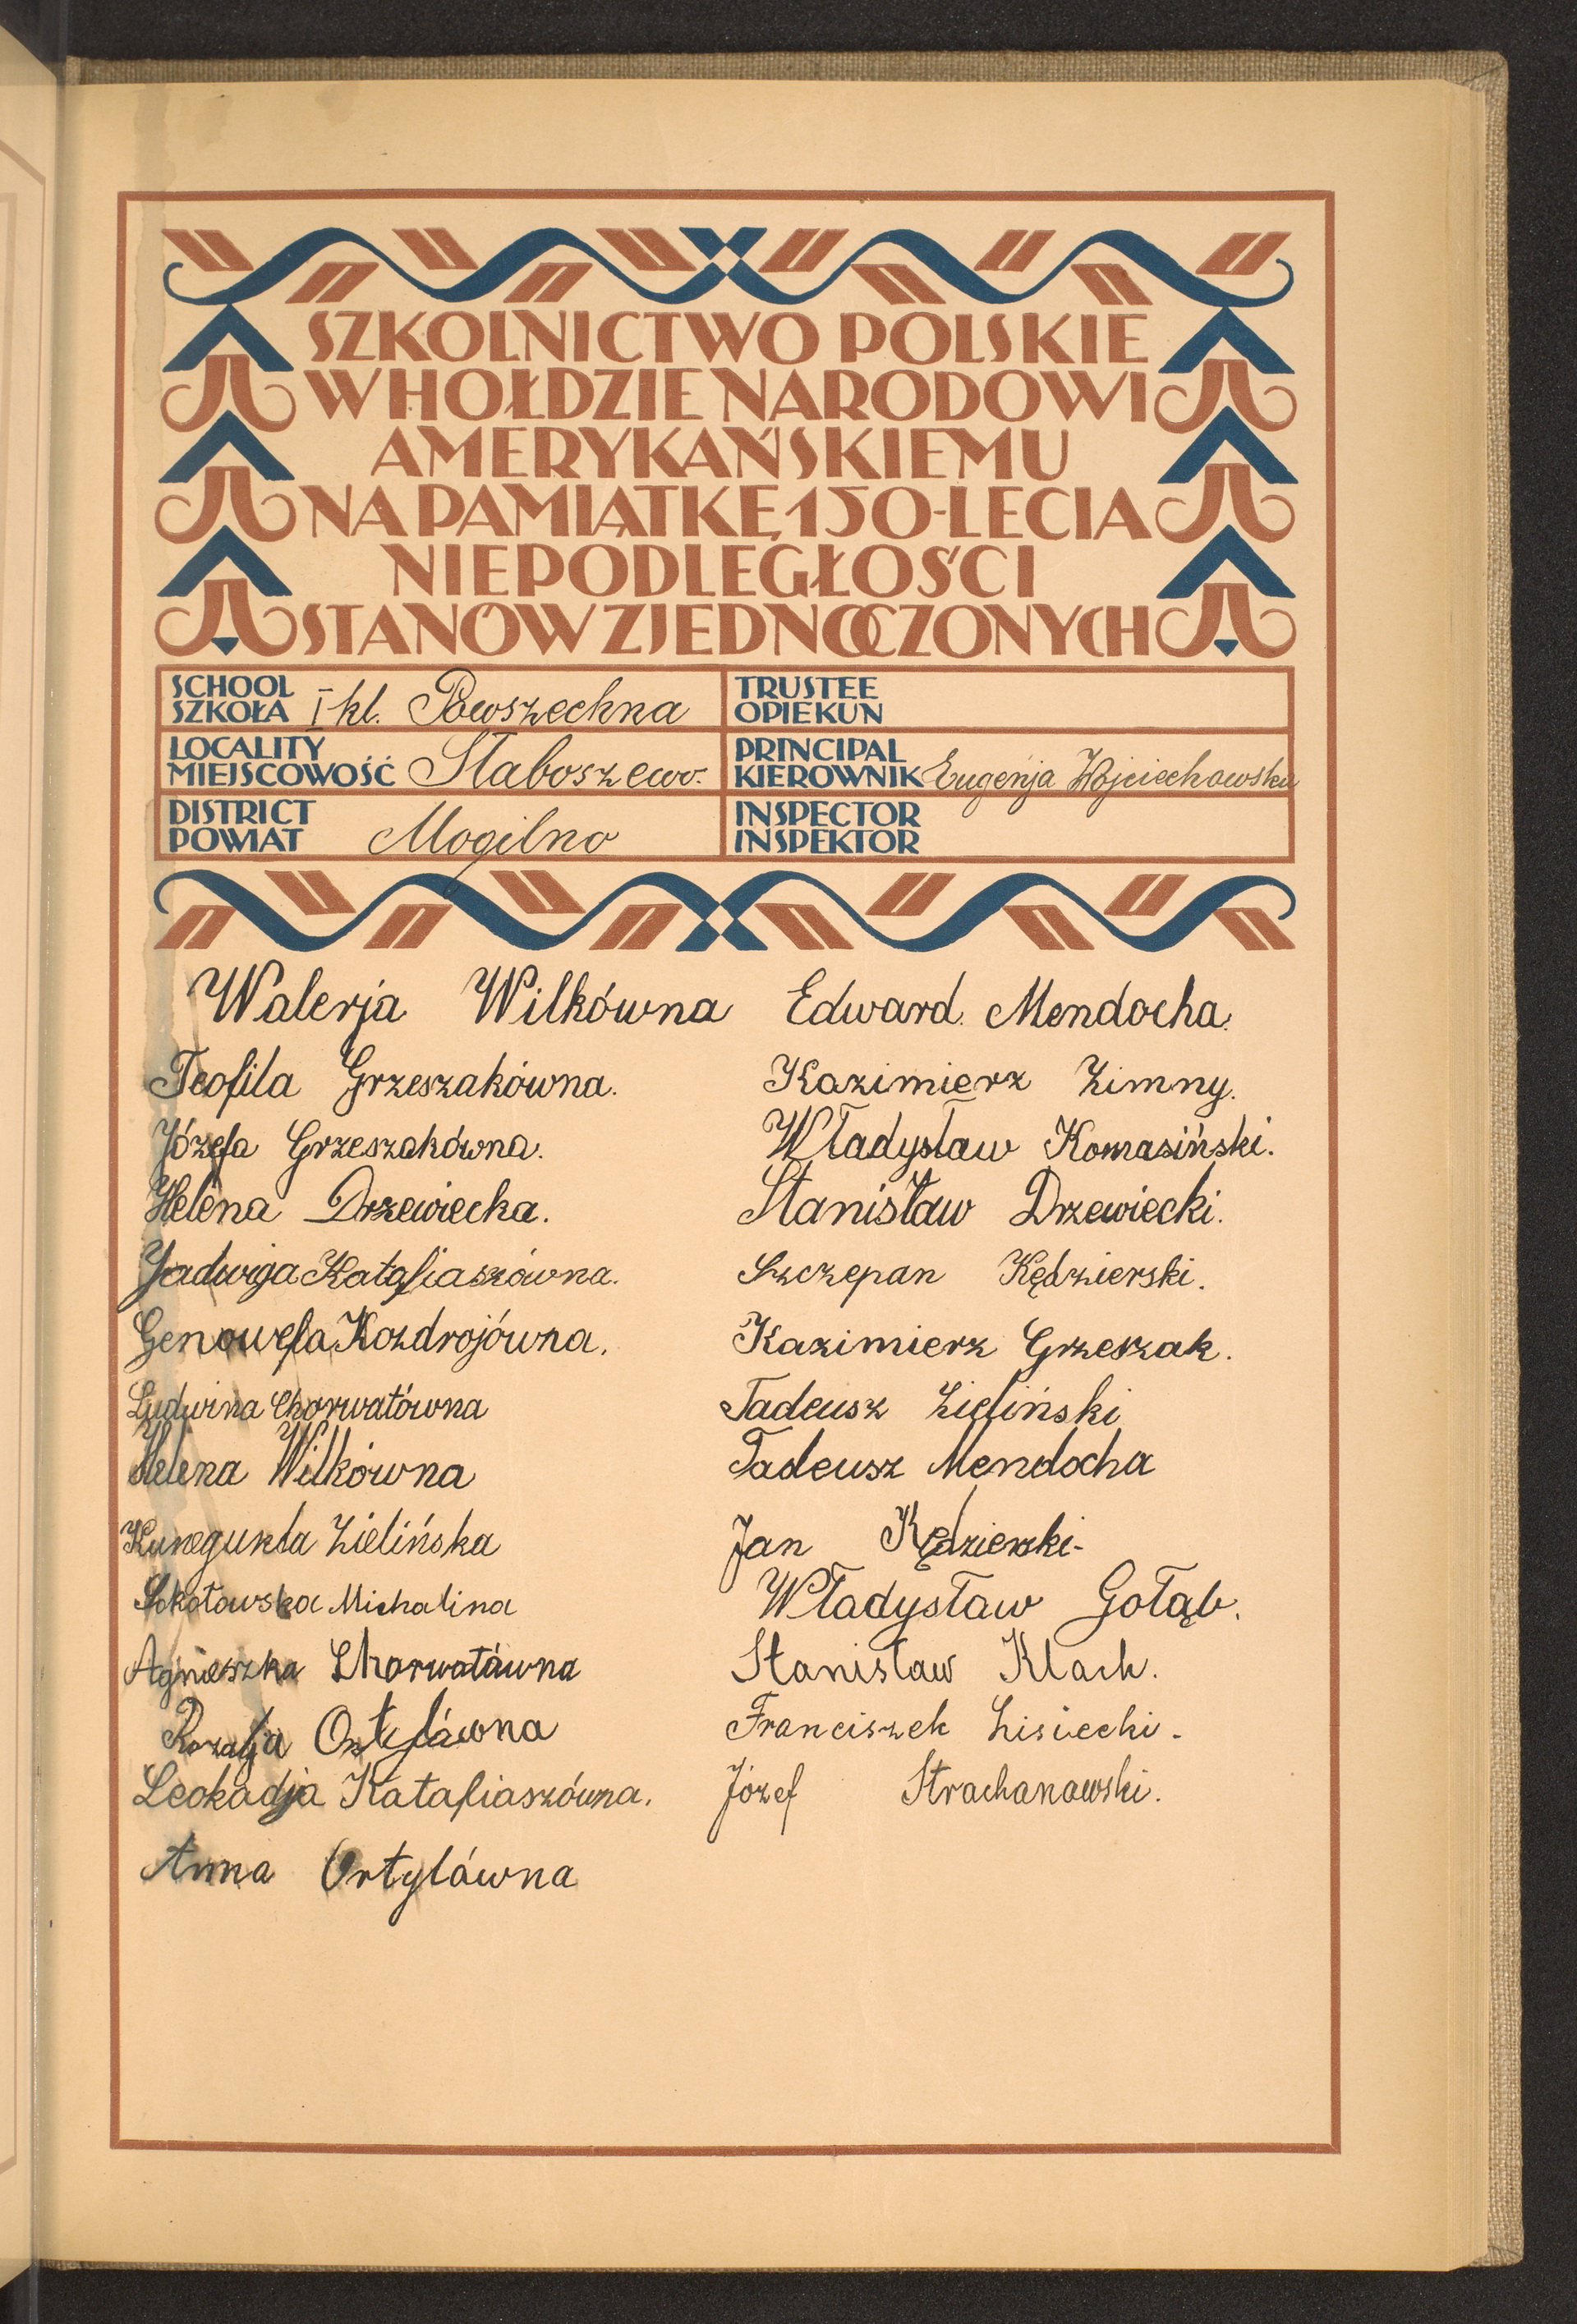 SZKOLNICTWO POLSKIE
W HOŁDZIE NARODOWI
AMERYKAŃSKIEMU
NA PAMIĄTKĘ 150-LECIA
NIEPODLEGŁOŚCI
STANÓW ZJEDNOCZONYCH
SCHOOL
SZKOŁA I kl. Powszechna
TRUSTEE
OPIEKUN
LOCALITY
MIEJSCOWOŚĆ Słaboszewo.
PRINCIPAL
KIEROWNIK Eugenja Wojciechowska
DISTRICT
POWIAT Mogilno
INSPECTOR
INSPEKTOR
Walerja Wilkówna
Teofila Grzeszakówna.
Józefa Grzeszakówna.
Helena Drzewiecka.
Jadwiga Katafiaszówna.
Genowefa Kozdrojówna.
Ludwina Chorwatówna
Helena Wilkówna
Kunegunda Zielińska
Sokołowska Michalina
Agnieszka Chorwatówna
Rozalja
Leokadja Katafiaszówna.
Anna Ortylówna
Edward Mendocha.
Kazimierz Zimny.
Władysław Komasiński.
Stanisław Drzewiecki.
Szczepan Kędzierski.
Kazimierz Grzeszak.
Tadeusz Zieliński
Tadeusz Mendocha
Jan Kędzierski-
Władysław Gołąb.
Stanisław Klach.
Franciszek Lisiecki.
Józef Strachanowski.